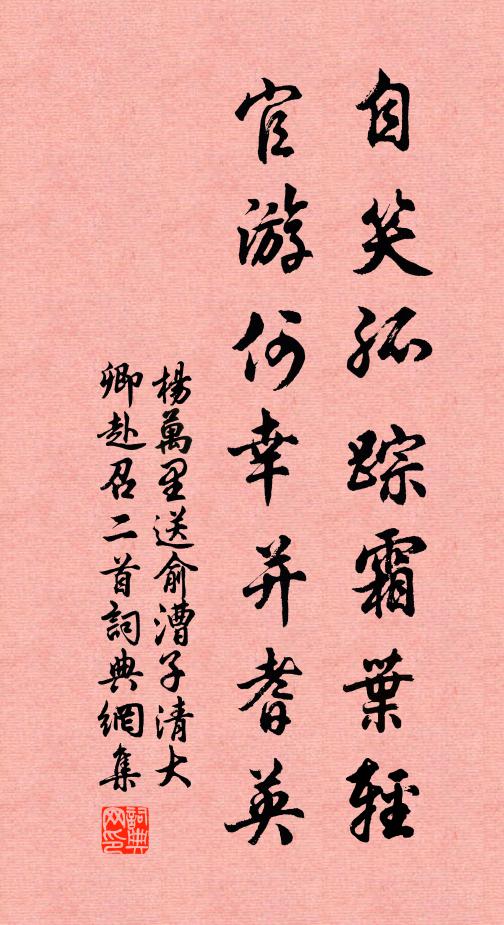 自笑孤踪霜葉輕
官游何幸并耆英
楊萬里送俞漕子清大
卿赴召二首詞典網集
詞典
网印